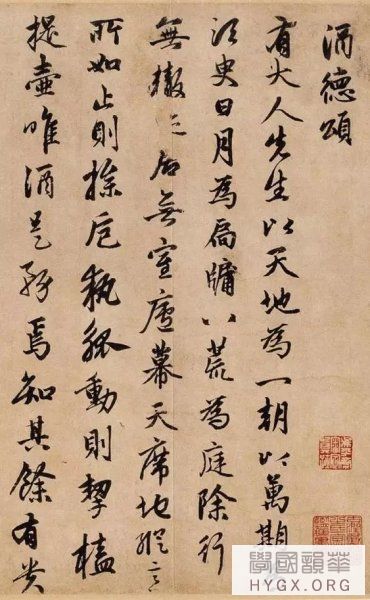 酒德頌
有大人先生以天地為一朝以萬期
須臾日月為扃牖八荒為庭除行
無轍跡居無室廬幕天席地縱意
所如止則操卮執觚動則挈榼
提壺唯酒是務焉知其餘有貴
華韻國學
HYGX.ORG